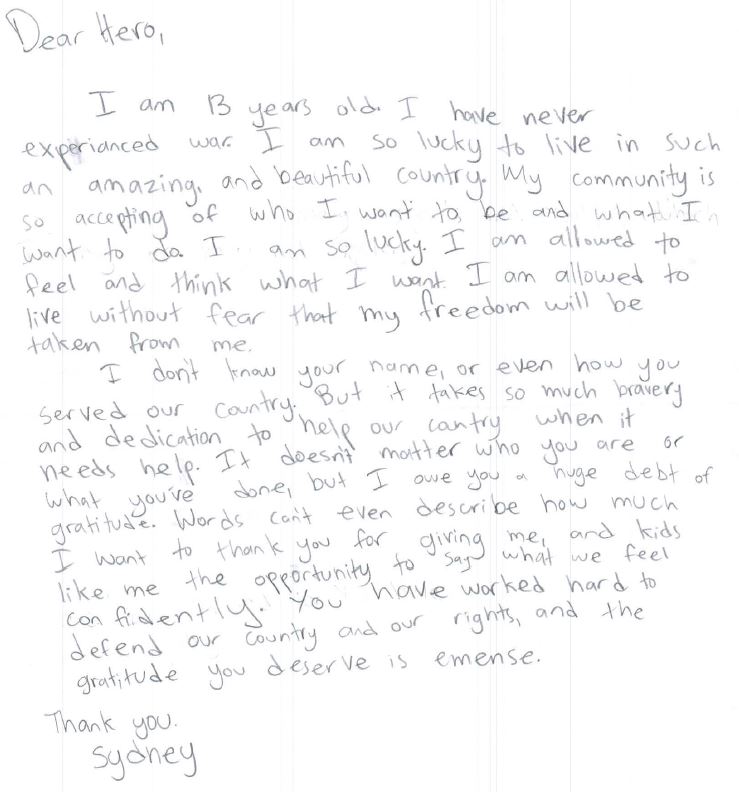 Dear Hero,
I am 13 years old. I have never
experianced war. I am so lucky to live in such
an amazing, and beautiful country. My community is
so accepting of who I want to be and what I
want to do. I am so lucky. I am allowed to
feel and think what I want. I am allowed to
live without fear that my freedom will be
taken from me.
I don't know your name, or even how you
served our country. But it takes so much bravery
and dedication to help our cantry when it
needs help. It doesn't matter who you are or
what you've done, but I owe you a huge debt of
gratitude. Words can't even describe how much
I want to thank you for giving me, and kids
like me the opportunity to say what we feel
confidently. You have worked hard to
defend our country and our rights, and the
gratitude you deserve is emense.
Thank you.
Sydney